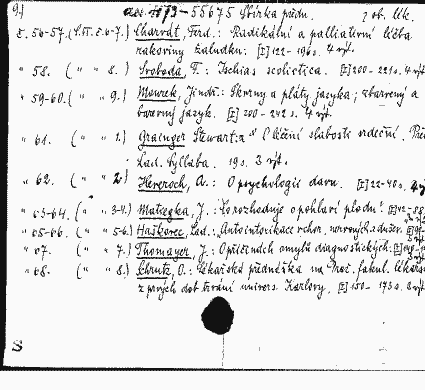 9.) 73-55675 Sbírka předn. z ob. lék.
č. 56-57. (S. VI. č. 6-7.) Charvát, Ferd.: Radikální a palliativní léčba
rakoviny žaludku. [I] 122-196 s. 4 výt.
" 58. ( " " 8.) Svoboda, F.: Ischias scoliotica. [I] 200-221 s. 4 výt.
" 59-60. ( " " 9.) Mourek, Jindř.: Skvrny a pláty jazyka; zbarvený a
barevný jazyk. [I] 200-242 s. 4 výt.
" 61. ( " " 1.) Grainger Stewart: O léčení slabosti srdeční. Př.
Lad. Syllaba. 19 s. 3 výt.
" 62. ( " " 2.) Heveroch, A.: O psychologii davu. [I] 22-40 s. 4 výt.
" 63-64. ( " " 3-4.) Matiegka, J.: Co rozhoduje o pohlaví plodu? [I] 42-88
" 65-66. ( " " 5-6.) Haškovec, Lad.: Autointoxikace v chor. nervových a dušev.
" 67. ( " " 7.) Thomayer, J.: O příčinách omylů diagnostických.
" 68. ( " " 8.) Schrutz, O.: Lékařská přednáška na Praž. fakul. lékařs.
z prvých dob trvání univers. Karlovy. [I] 150-173 s. 3 výt.
S